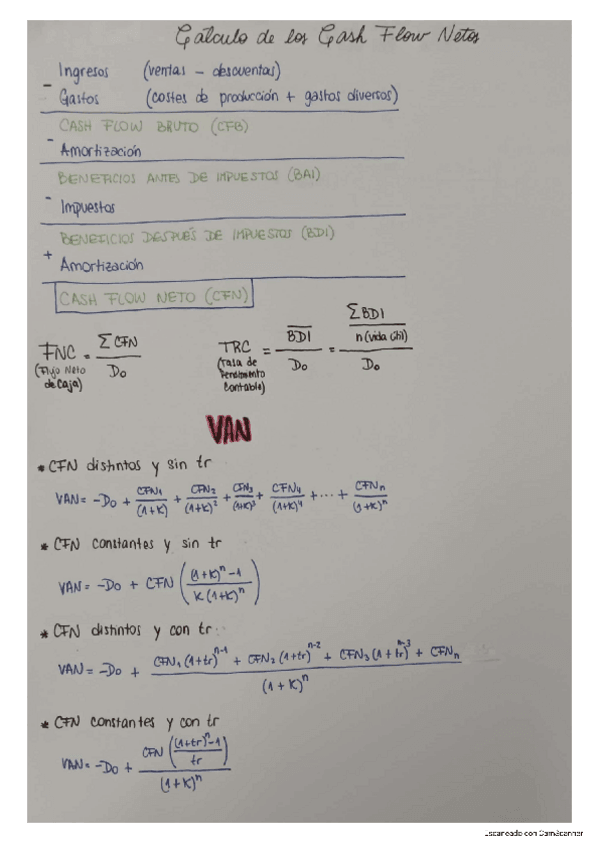 Calculo de los Cash Flow Netos
Ingresos (ventas - descuentas)
- Gastos (costes de producción + gastos diversos)
CASH FLOW BRUTO (CFB)
- Amortización
BENEFICIOS ANTES DE IMPUESTOS (BAI)
- Impuestos
BENEFICIOS DESPUÉS DE IMPUESTOS (BDI)
+ Amortización
CASH FLOW NETO (CFN)
FNC = Σ CFN / Do
(Flujo Neto de Caja)
TRC = BDI / Do = (Σ BDI / n (vida útil)) / Do
(tasa de rendimiento contable)
VAN
* CFN distintos y sin tr
VAN = -Do + CFN1/(1+K) + CFN2/(1+K)^2 + CFN3/(1+K)^3 + CFN4/(1+K)^4 + ... + CFNn/(1+K)^n
* CFN constantes y sin tr
VAN = -Do + CFN ((1+K)^n - 1 / K(1+K)^n)
* CFN distintos y con tr
VAN = -Do + CFN1 (1+tr)^n-1 + CFN2 (1+tr)^n-2 + CFN3 (1+tr)^n-3 + CFNn / (1+K)^n
* CFN constantes y con tr
VAN = -Do + CFN ((1+tr)^n - 1 / tr) / (1+K)^n
Escaneado con CamScanner